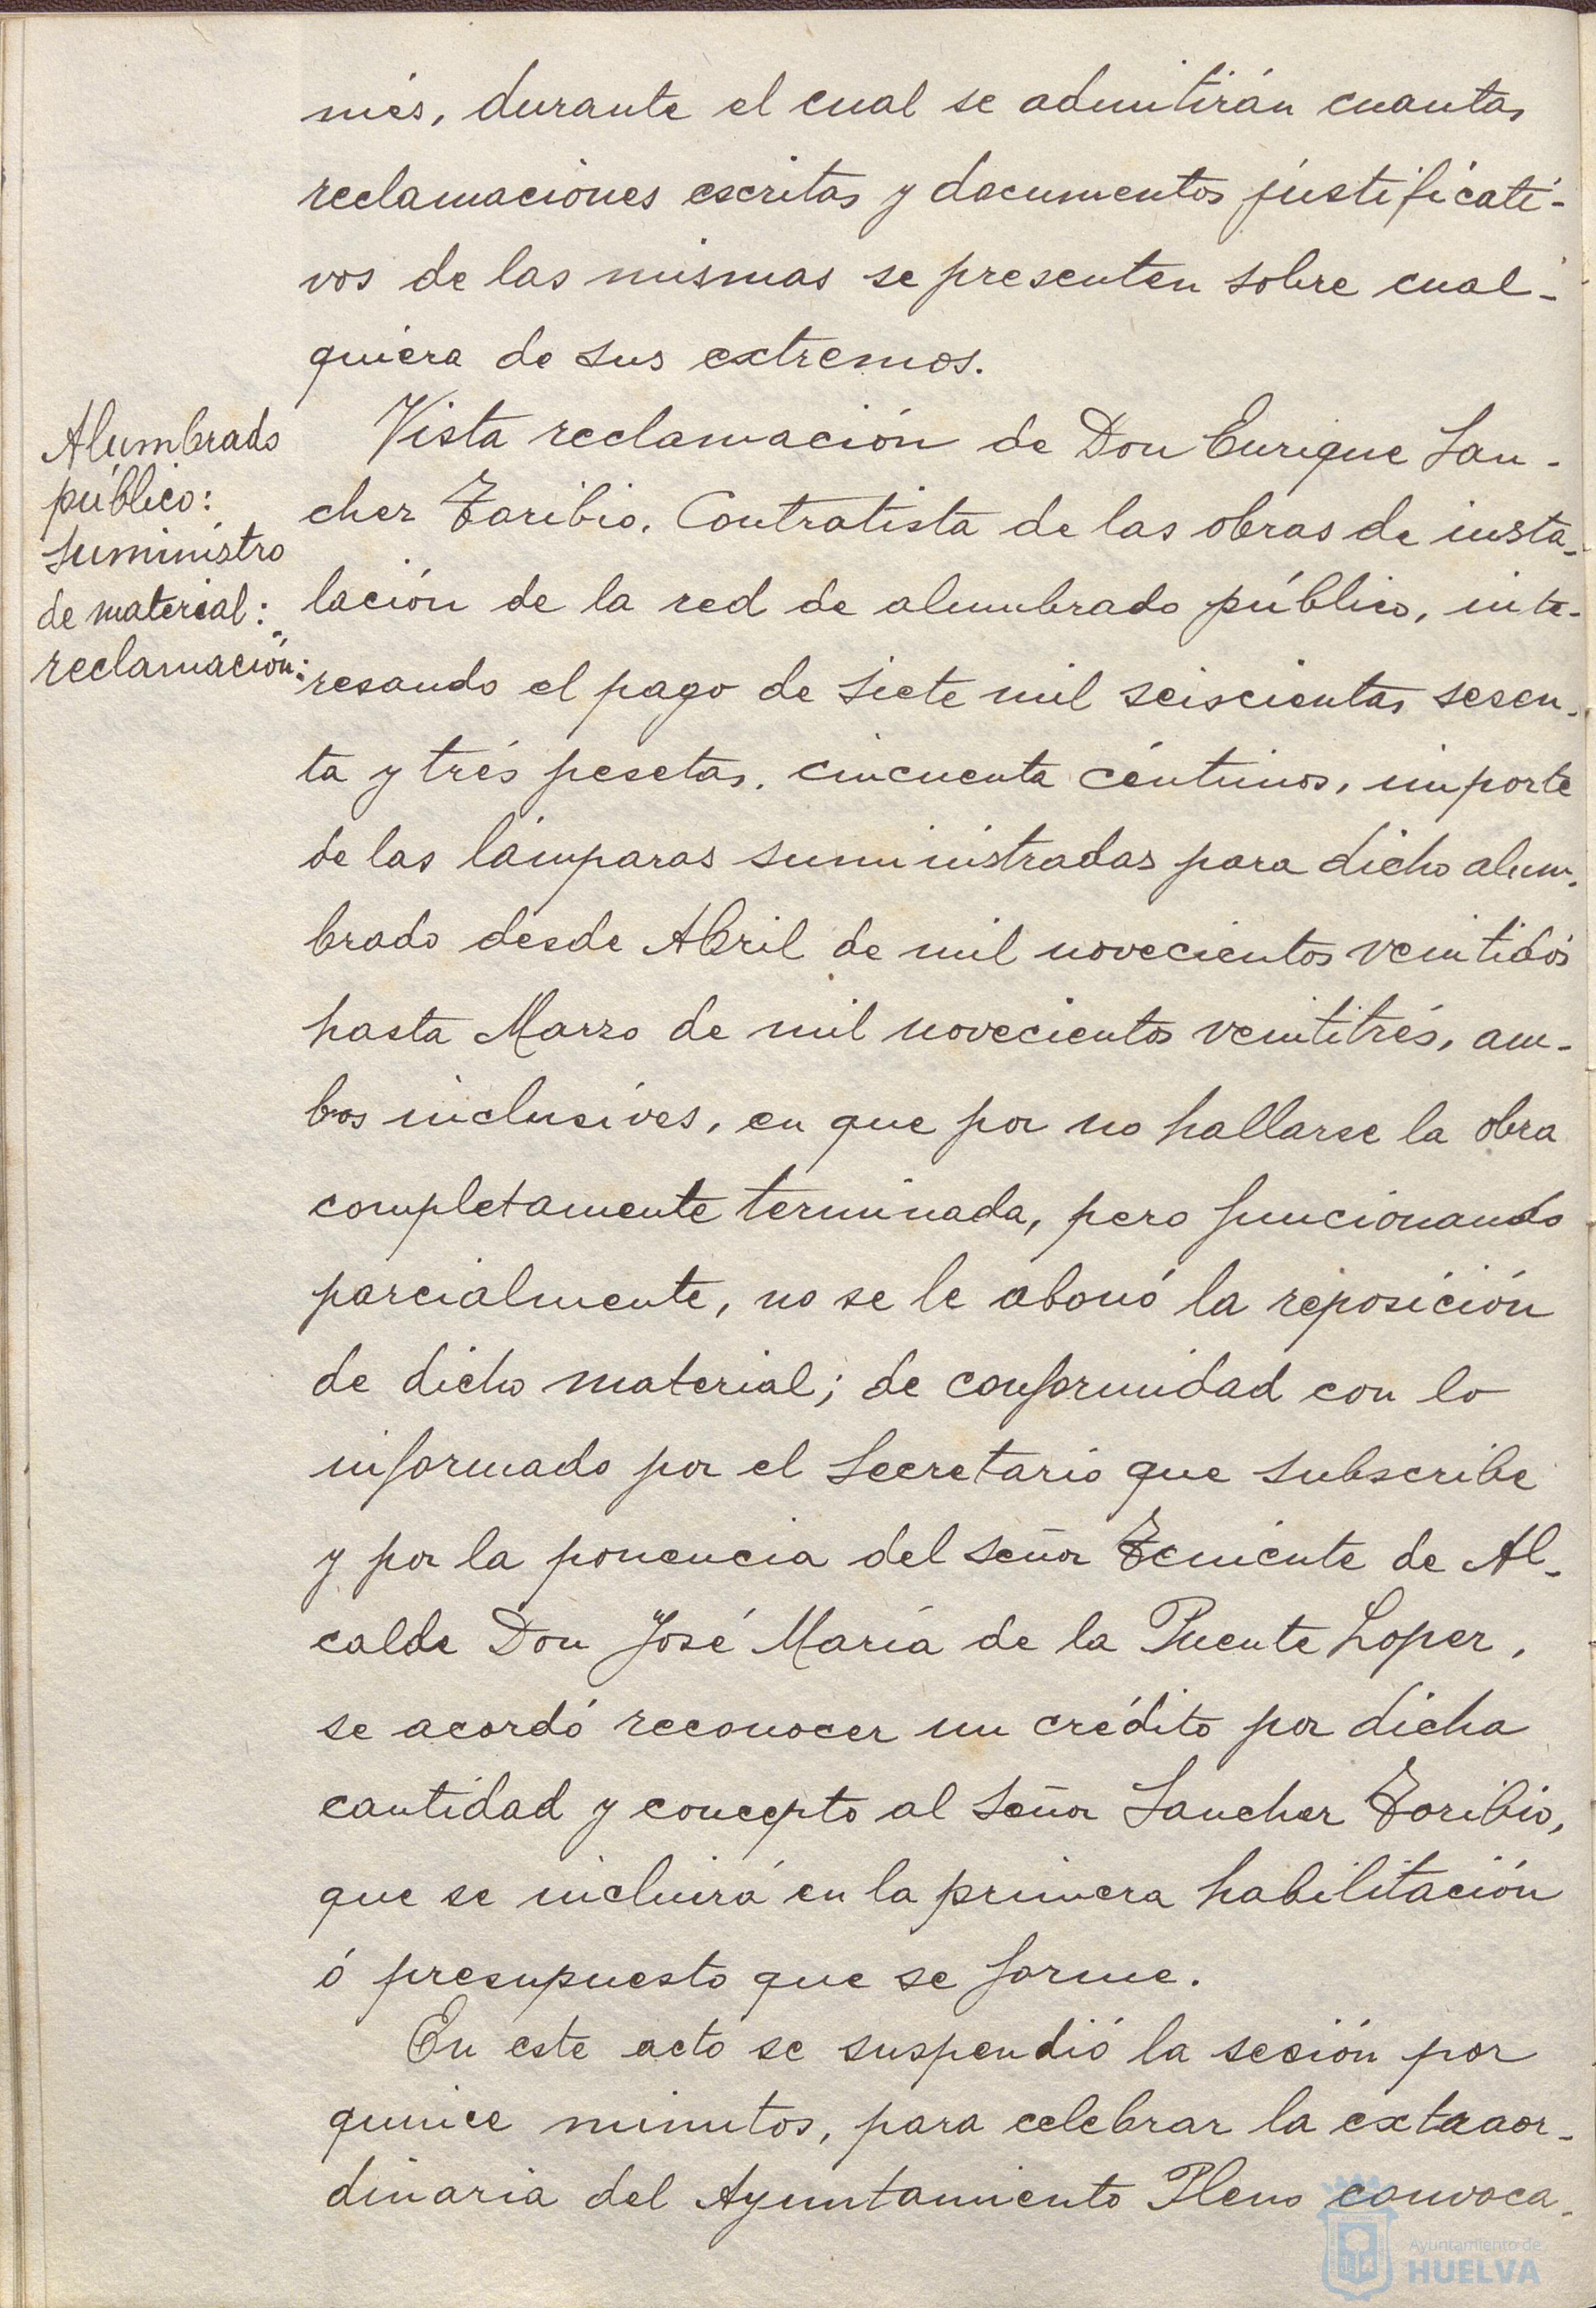 més, durante el cual se admitirán cuantas
reclamaciones escritas y documentos justificati-
vos de las mismas se presenten sobre cual-
quiera de sus extremos.
Alumbrado
público:
suministro
de material:
reclamación:
Vista reclamación de Don Enrique San-
chez Toribio. Contratista de las obras de insta-
lación de la red de alumbrado público, inte-
resando el pago de siete mil seiscientas sesen-
ta y trés pesetas. cincuenta céntimos, importe
de las lámparas suministradas para dicho alum-
brado desde Abril de mil novecientos veintidós
hasta Marzo de mil novecientos veintitrés, am-
bos inclusives, en que por no hallarse la obra
completamente terminada, pero funcionando
parcialmente, no se le abonó la reposición
de dicho material; de conformidad con lo
informado por el Secretario que subscribe
y por la ponencia del señor Teniente de Al-
calde Don José María de la Puente Lopez,
se acordó reconocer un crédito por dicha
cantidad y concepto al Señor Sanchez Toribio,
que se incluirá en la primera habilitación
ó presupuesto que se forme.
En este acto se suspendió la sesión por
quince minutos, para celebrar la extraor-
dinaria del Ayuntamiento Pleno convoca-
Ayuntamiento de
HUELVA